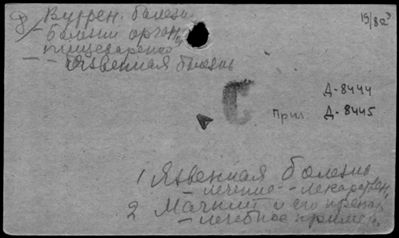 8/ Внутрен. болезн
- болезни орган.
пищеварения
- - Язвенная болезнь
19/82³
С
Д-8444
Прил. Д-8445
1 Язвенная болезнь
- лечение - лекарствен.
2 Магний и его препар.
- лечебное примен.